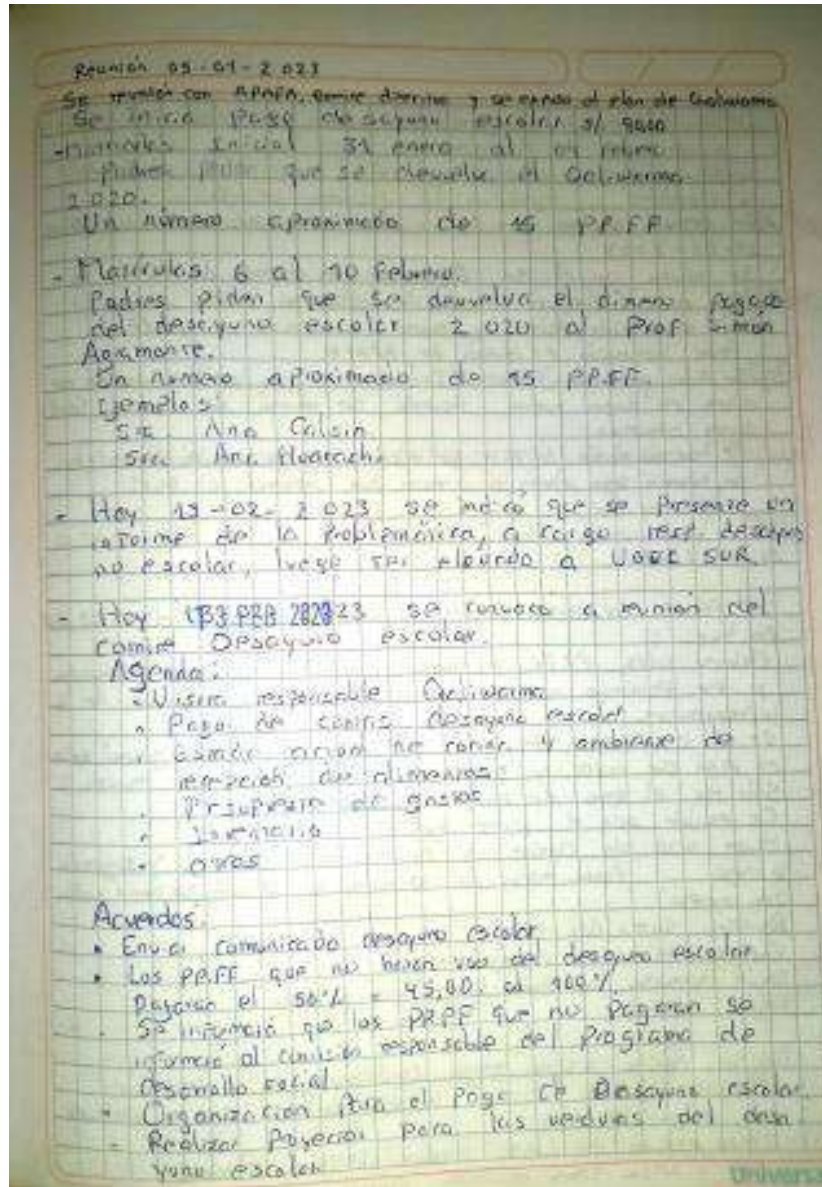 Reunión 05-01-2023
Se reunión con APAFA, comite directivo y se expuso el plan de Qaliwarma
Se inicia pago desayuno escolar s/. 90.00
- Matriculas Inicial 31 enero al 01 febre
Padres piden que se devuelva el Qaliwarma
2020.
Un número aproximado de 15 PP.FF.
- Matrículas 6 al 10 Febrero.
Padres piden que se devuelva el dinero pagado
del desayuno escolar 2020 al Prof. Simón
Un número aproximado de 15 PP.FF.
Ejemplos:
Sra. Ana Calsin
Sra. Ana Huarachi
- Hoy 13-02-2023 se indicó que se presente un
informe de la problemática, a cargo resp. desayu
no escolar, luego ser elevado a UGEL SUR
- Hoy 13 FEB 2023 se convoca a reunión del
comite Desayuno escolar.
Agenda:
. Visita responsable Qaliwarma
. Pago de comité desayuno escolar
. Estado cocina y ambiente de
recepción de alimentos
. Presupuesto de gastos
. Inventario
. otros
Acuerdos:
• Enviar comunicado desayuno escolar
• Los PP.FF que no hacen uso del desayuno escolar
pagaran el 50% = 45,00. al 100%.
. Se informará que los PP.FF que no pagaran se
informará al responsable del Programa de
desarrollo social
• Organización para el pago de Desayuno escolar.
- Realizar Proyectos para las verduras del desa
yuno escolar
Univers